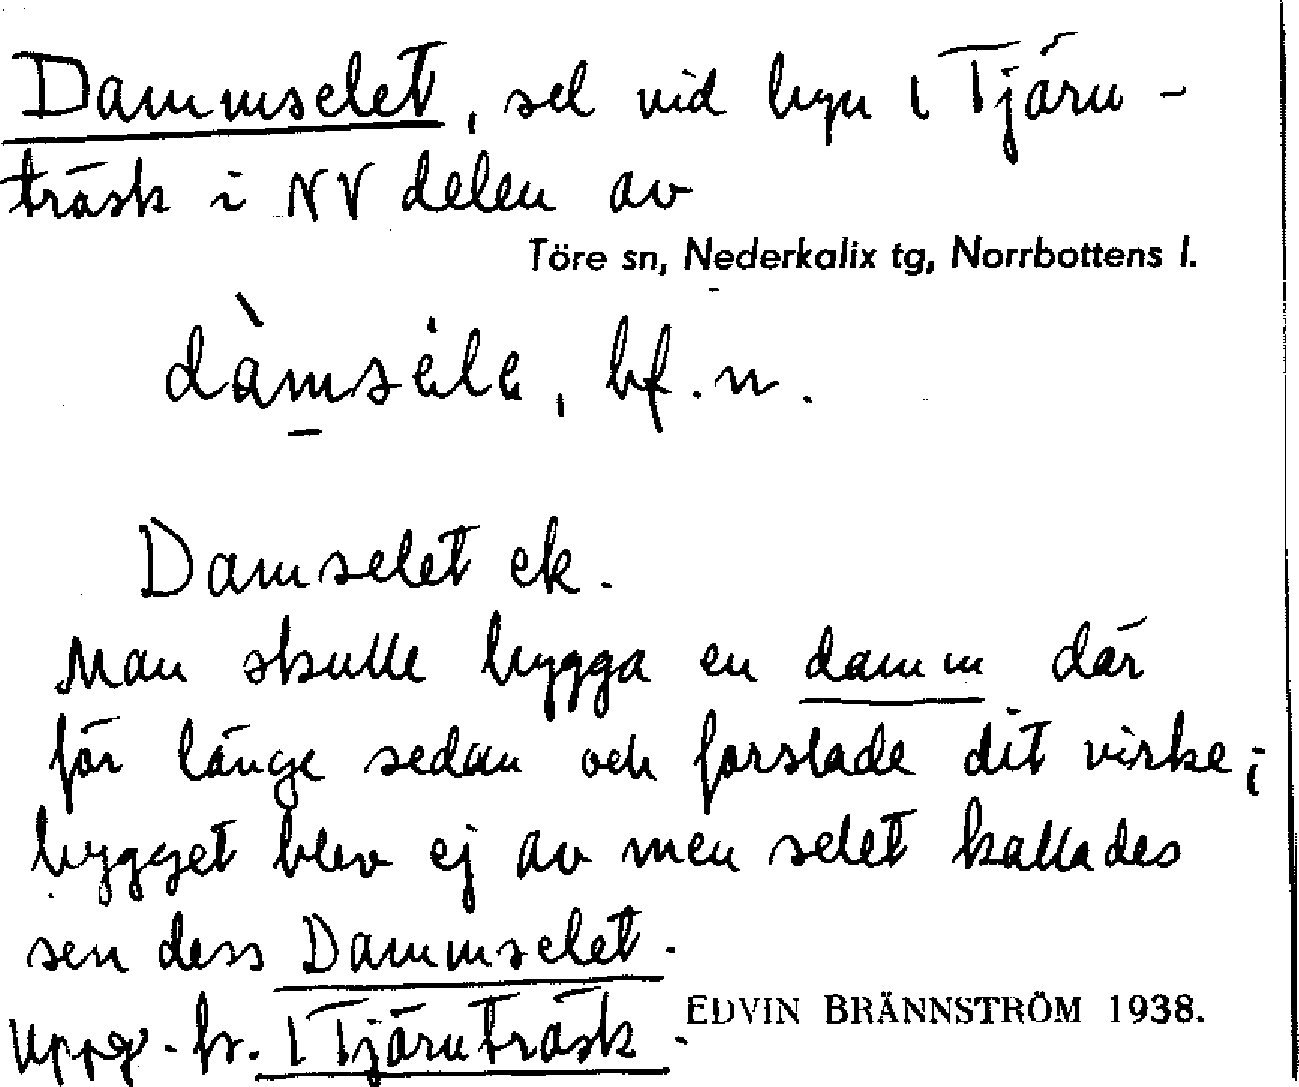 Dammselet, sel vid byn 1 Tjäru-
träsk i NV delen av
Töre sn, Nederkalix tg, Norrbottens l.
dàmsèle, bf. n.
Damselet ek.
Man skulle bygga en damm där
för länge sedan och forslade dit virke;
bygget blev ej av men selet kallades
sen dess Dammselet.
Uppg. fr. 1 Tjäruträsk.
EDVIN BRÄNNSTRÖM 1938.